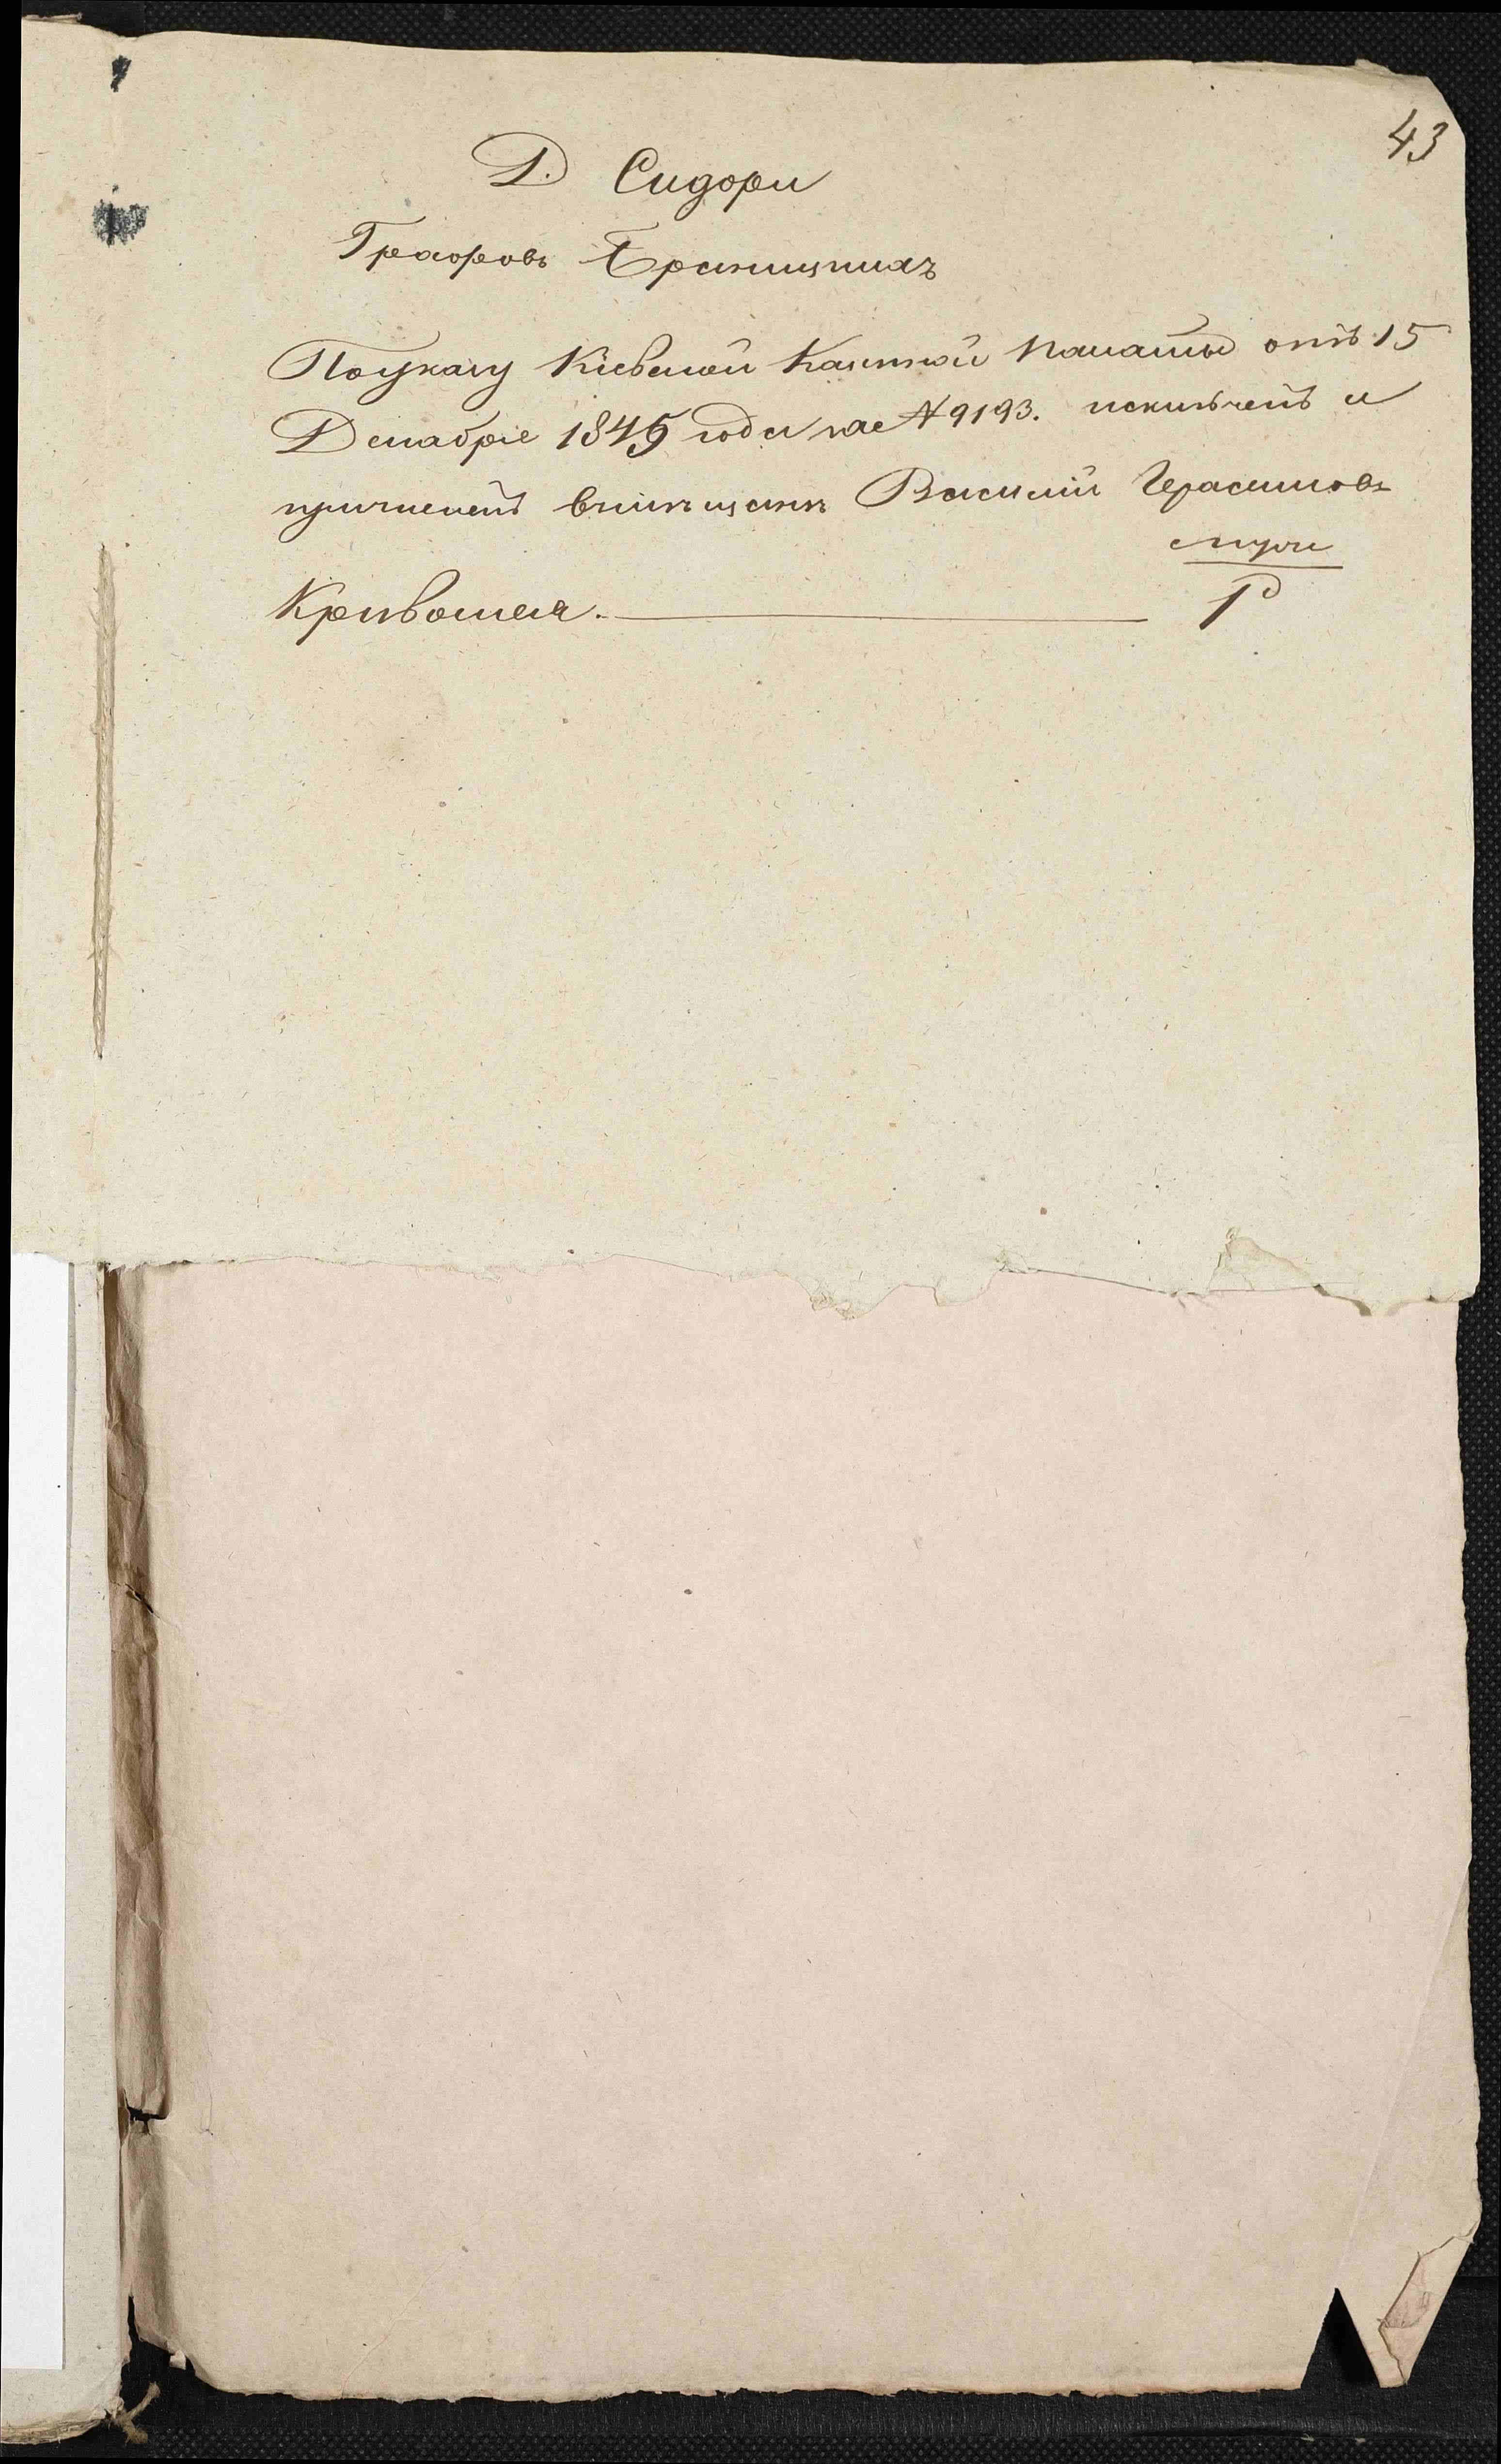 43
Д. Сидори
Графовъ Браницкихъ
По указу Кіевской Казенной палаты отъ 15
Декабря 1845 года за № 9193. исключенъ и
причисленъ Василій Герасимовъ
муж
Кривошея. 1